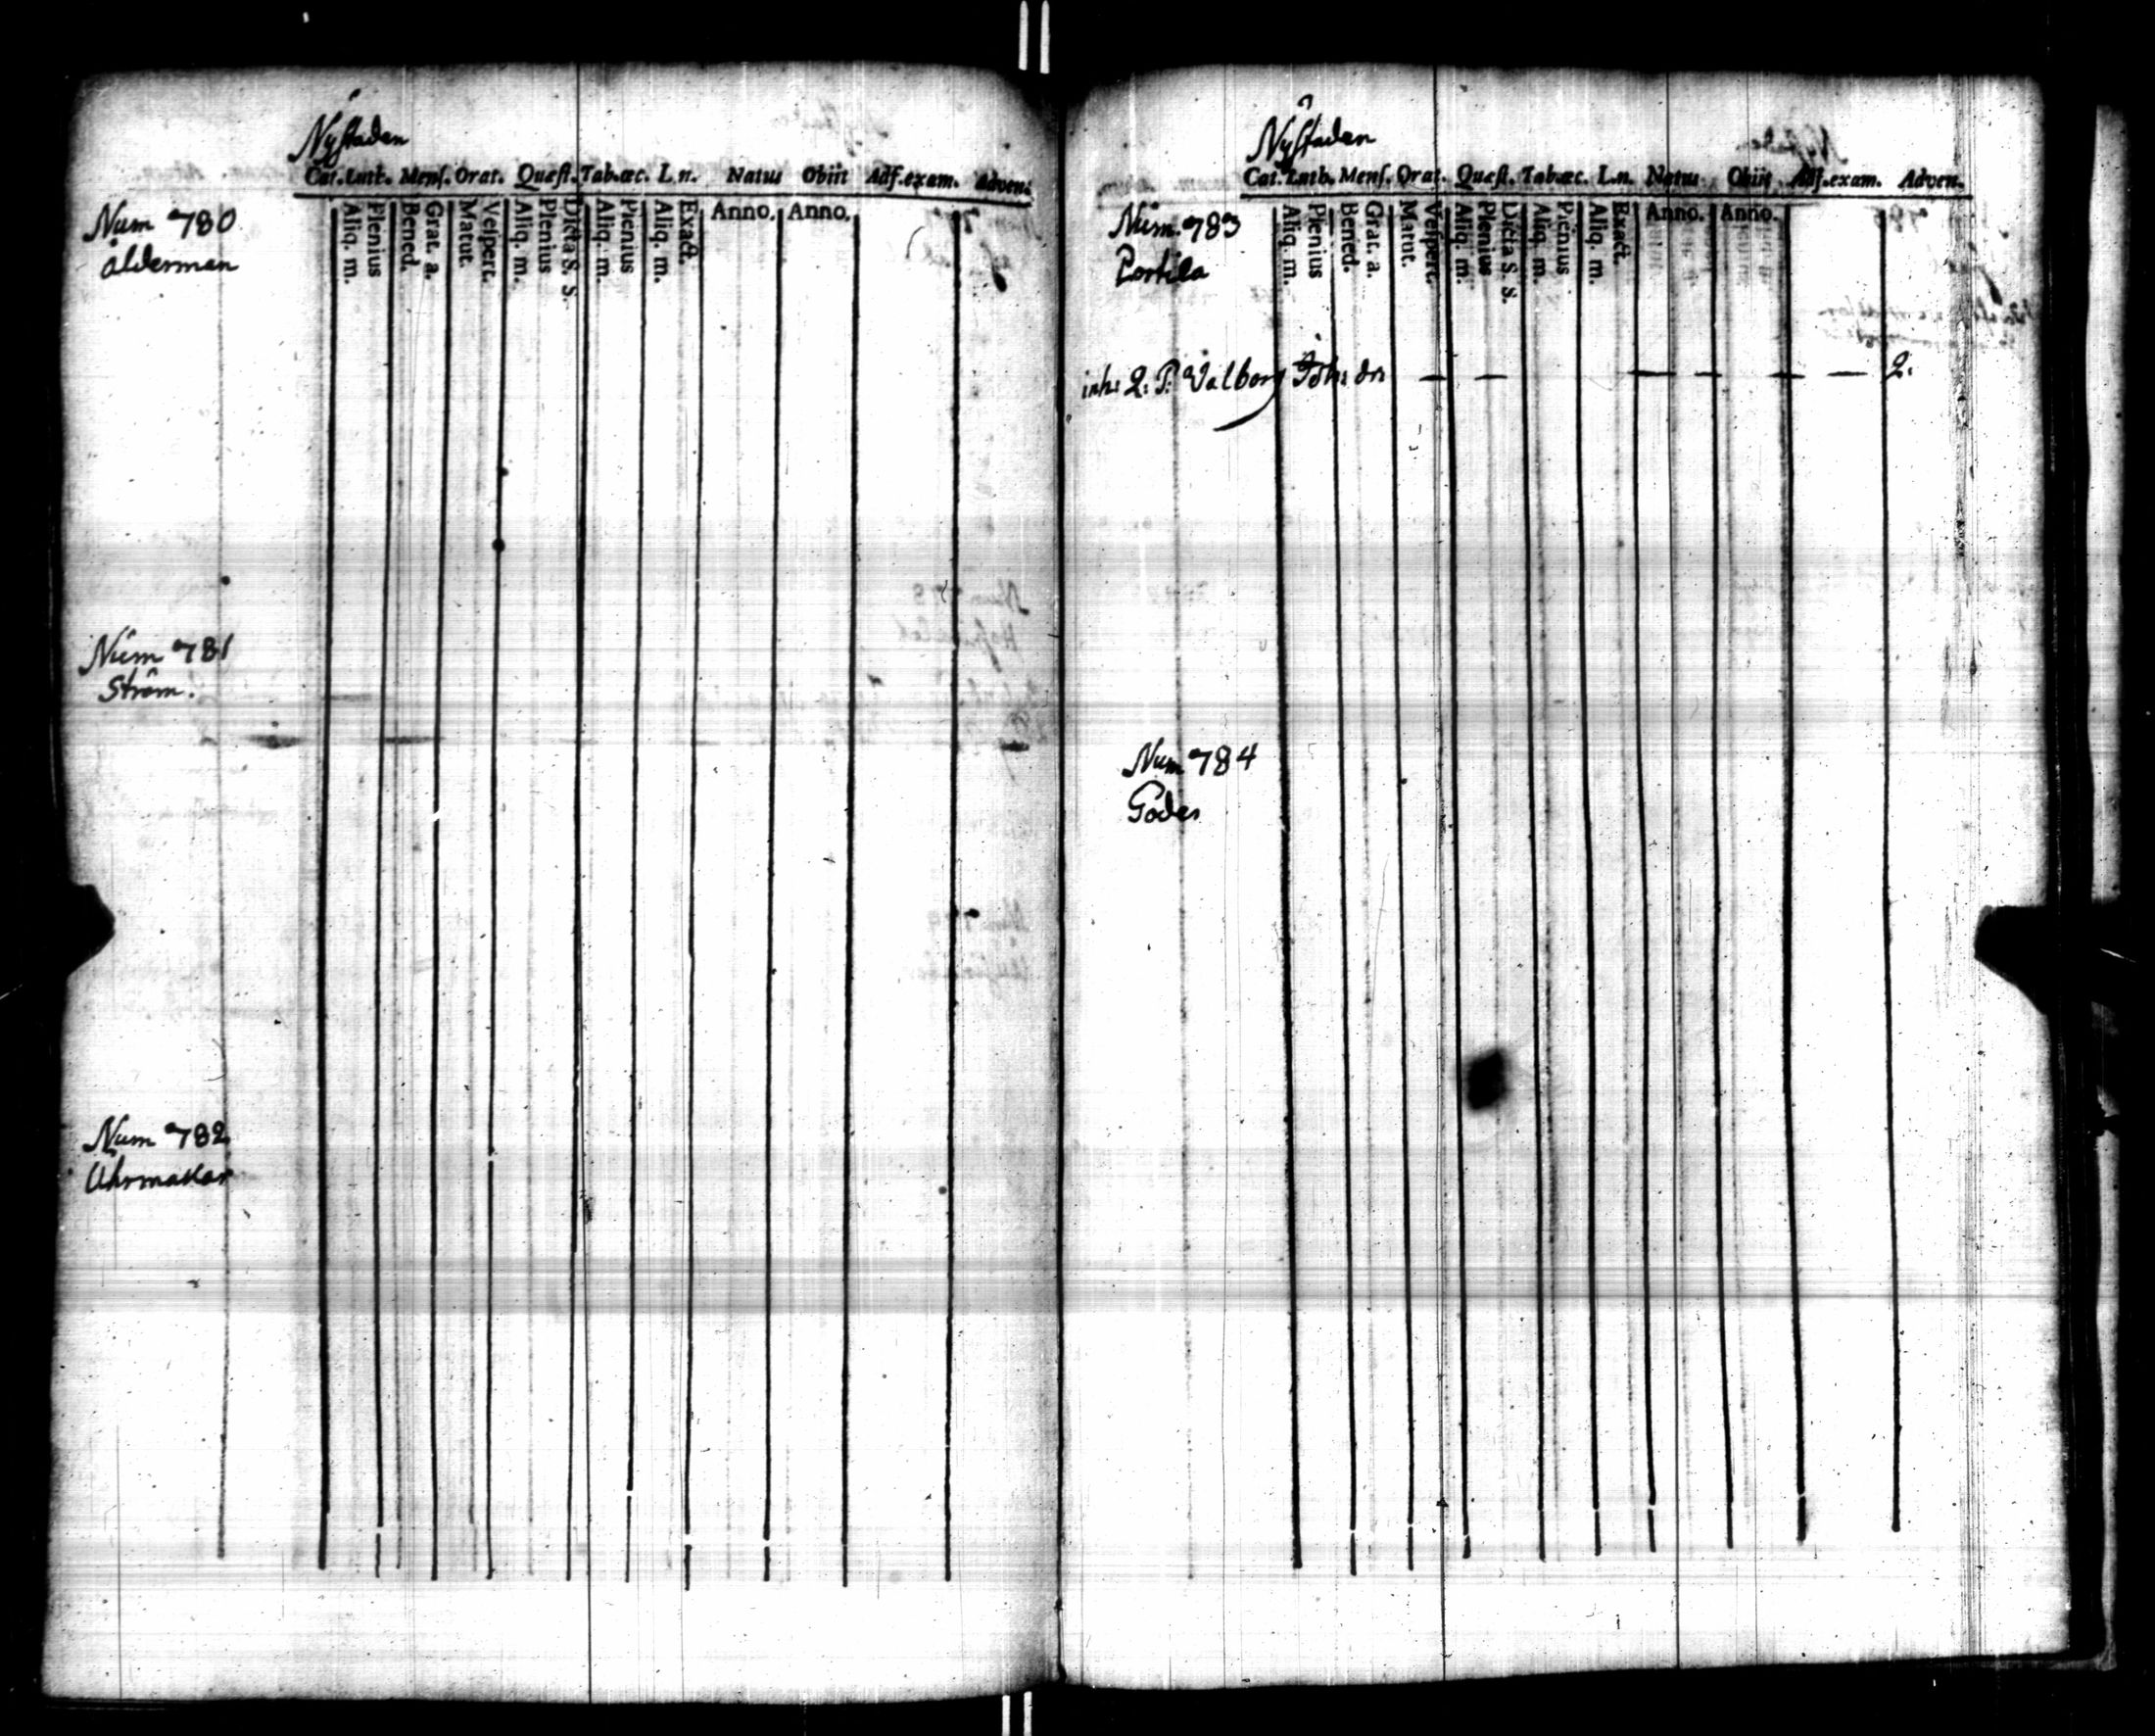 Nystaden
Cat. Luth. Mens. Orat. Quæst. Tab.œc. L.n. Natus Obiit Adf.exam. Adven.
Aliq. m. Plenius Bened. Grat. a. Matut. Vespert. Aliq. m. Plenius Dicta S. S. Aliq. m. Plenius Aliq. m. Exact. Anno. Anno.
Num 780
Ålderman
Num 781
Ström.
Num 782
Uhrmakar
Nystaden
Cat. Luth. Mens. Orat. Quæst. Tab.œc. L.n. Natus Obiit Adf.exam. Adven.
Aliq. m. Plenius Bened. Grat. a. Matut. Vespert. Aliq. m. Plenius Dicta S. S. Aliq. m. Plenius Aliq. m. Exact. Anno. Anno.
Num 783
Portila
inh: Q. P. Valborg Joh: dr — — — — — — 2.
Num 784
Godes